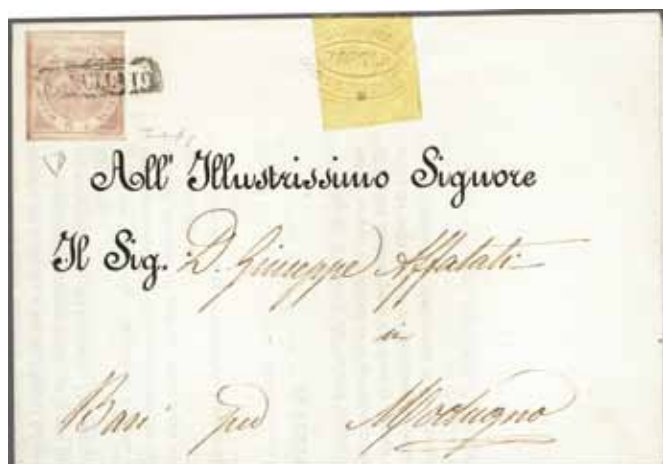 All' Illustrissimo Signore
Il Sig. D. Giuseppe Affatati
in
Bari per Modugno